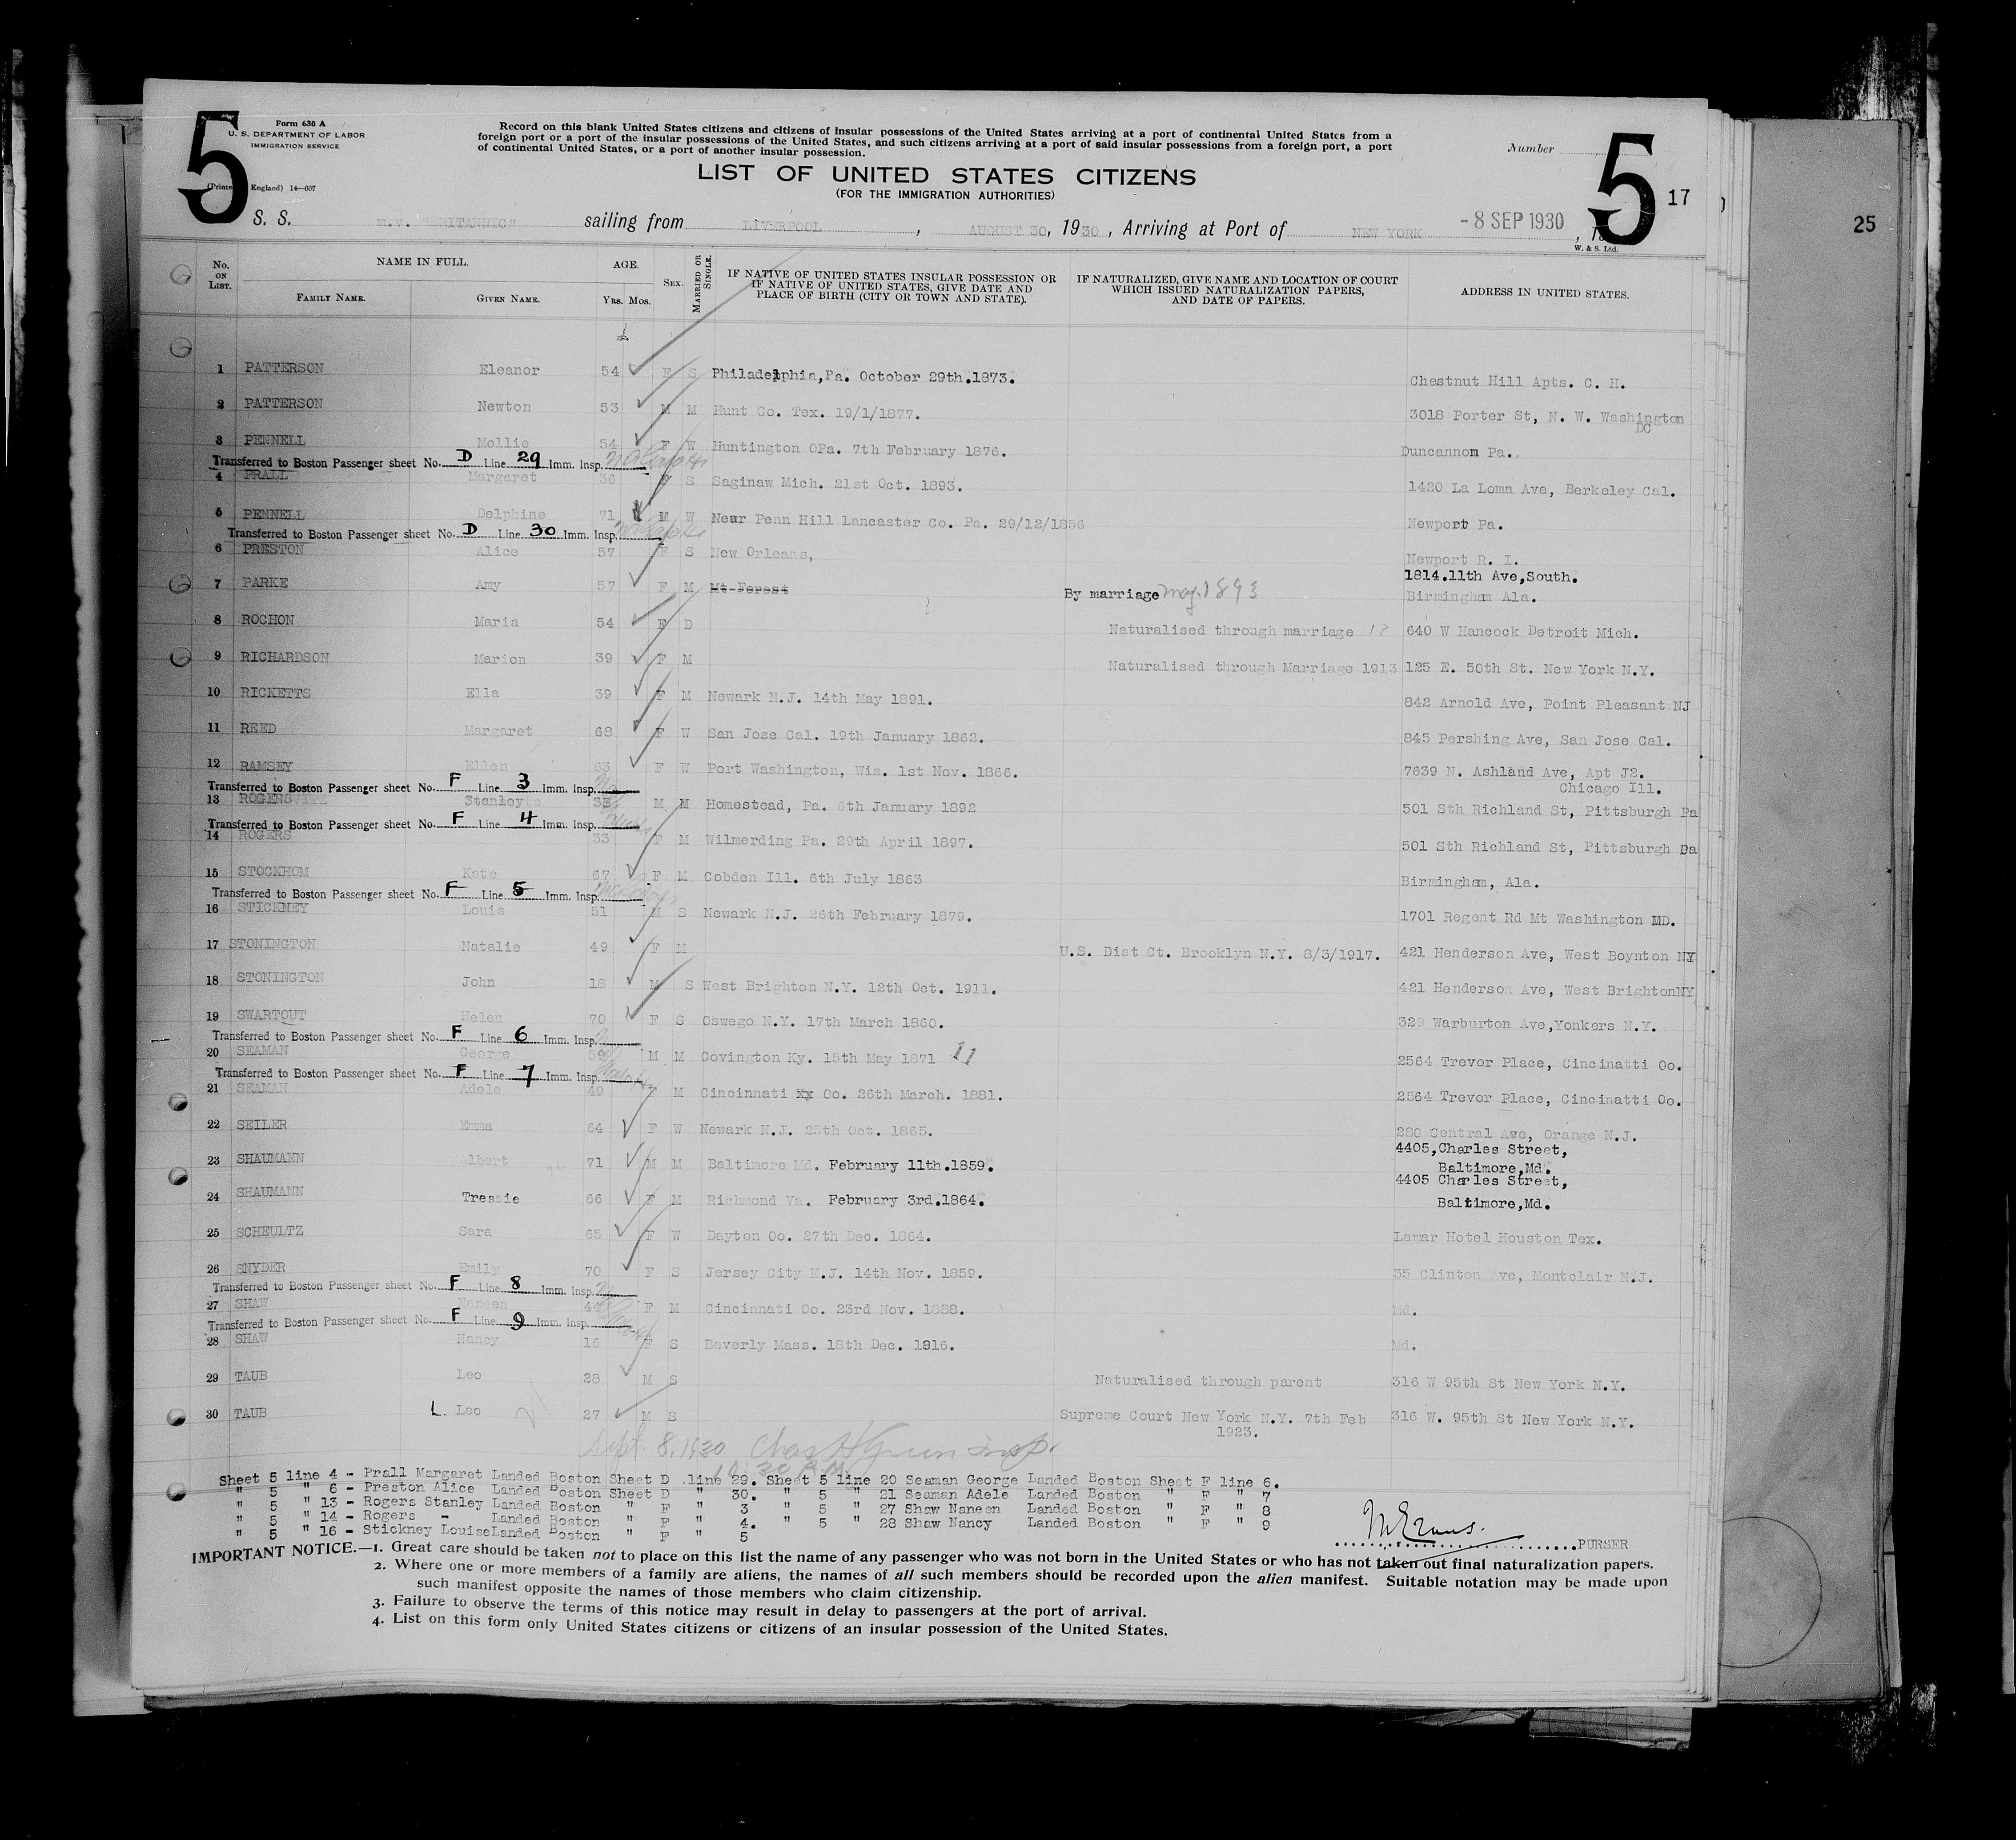 5
Form 630 A
U. S. DEPARTMENT OF LABOR
IMMIGRATION SERVICE
England) 14—607
Record on this blank United States citizens and citizens of insular possessions of the United States arriving at a port of continental United States from a
foreign port or a port of the insular possessions of the United States, and such citizens arriving at a port of said insular possessions from a foreign port, a port
of continental United States, or a port of another insular possession.
LIST OF UNITED STATES CITIZENS
(FOR THE IMMIGRATION AUTHORITIES)
Number
5
17
25
S. S. M.V. "BRITANNIC" sailing from LIVERPOOL, AUGUST 30, 1930, Arriving at Port of NEW YORK -8 SEP 1930
W. & S. Ltd.
No. ON LIST.
NAME IN FULL.
FAMILY NAME. GIVEN NAME.
AGE.
Yrs. Mos.
SEX.
MARRIED OR SINGLE.
IF NATIVE OF UNITED STATES INSULAR POSSESSION OR
IF NATIVE OF UNITED STATES, GIVE DATE AND
PLACE OF BIRTH (CITY OR TOWN AND STATE).
IF NATURALIZED, GIVE NAME AND LOCATION OF COURT
WHICH ISSUED NATURALIZATION PAPERS,
AND DATE OF PAPERS.
ADDRESS IN UNITED STATES.
1 PATTERSON Eleanor 54 F S Philadelphia,Pa. October 29th.1873. Chestnut Hill Apts. C. H.
2 PATTERSON Newton 53 M M Hunt Co. Tex. 19/1/1877. 3018 Porter St, N. W. Washington
DC
3 PENNELL Mollie 54 F W Huntington OPa. 7th February 1876. Duncannon Pa.
Transferred to Boston Passenger sheet No. D Line 29 Imm. Insp.
4 PRALL Margaret 36 F S Saginaw Mich. 21st Oct. 1893. 1420 La Loma Ave, Berkeley Cal.
5 PENNELL Delphine 71 F W Near Penn Hill Lancaster Co. Pa. 29/12/1856 Newport Pa.
Transferred to Boston Passenger sheet No. D Line 30 Imm. Insp.
6 PRESTON Alice 57 F S New Orleans, Newport R. I.
7 PARKE Amy 57 F M Mt-Forest By marriage May. 1893 1814.11th Ave,South.
Birmingham Ala.
8 ROCHON Maria 54 F D Naturalised through marriage 640 W Hancock Detroit Mich.
9 RICHARDSON Marion 39 F M Naturalised through Marriage 1913 125 E. 50th St. New York N.Y.
10 RICKETTS Ella 39 F M Newark N.J. 14th May 1891. 842 Arnold Ave, Point Pleasant NJ
11 REED Margaret 68 F W San Jose Cal. 19th January 1862. 845 Pershing Ave, San Jose Cal.
12 RAMSEY Ellen 63 F W Port Washington, Wis. 1st Nov. 1866. 7639 N. Ashland Ave, Apt J2.
Chicago Ill.
Transferred to Boston Passenger sheet No. F Line 3 Imm. Insp.
13 ROGERS Stanley M M Homestead, Pa. 6th January 1892 501 Sth Richland St, Pittsburgh Pa
Transferred to Boston Passenger sheet No. F Line 4 Imm. Insp.
14 ROGERS 33 F M Wilmerding Pa. 29th April 1897. 501 Sth Richland St, Pittsburgh Pa
15 STOCKHOM Kate 67 F M Cobden Ill. 6th July 1863 Birmingham, Ala.
Transferred to Boston Passenger sheet No. F Line 5 Imm. Insp.
16 STICKNEY Louis 51 M S Newark N.J. 26th February 1879. 1701 Regent Rd Mt Washington MD.
17 STONINGTON Natalie 49 F M U.S. Dist Ct. Brooklyn N.Y. 8/3/1917. 421 Henderson Ave, West Boynton NY
18 STONINGTON John 18 M S West Brighton N.Y. 12th Oct. 1911. 421 Henderson Ave, West BrightonNY
19 SWARTOUT Helen 70 F S Oswego N.Y. 17th March 1860. 329 Warburton Ave,Yonkers N.Y.
Transferred to Boston Passenger sheet No. F Line 6 Imm. Insp.
20 SEAMAN George 59 M M Covington Ky. 15th May 1871 11 2564 Trevor Place, Cincinatti Oo.
Transferred to Boston Passenger sheet No. F Line 7 Imm. Insp.
21 SEAMAN Adele 49 F M Cincinnati Xx Oo. 26th March. 1881. 2564 Trevor Place, Cincinatti Oo.
22 SEILER Emma 64 F W Newark N.J. 25th Oct. 1865. 280 Central Ave, Orange N.J.
23 SHAUMANN Albert 71 M M Baltimore Md. February 11th.1859. 4405,Charles Street,
Baltimore,Md.
24 SHAUMANN Tressie 66 F M Richmond Va. February 3rd.1864. 4405 Charles Street,
Baltimore,Md.
25 SCHEULTZ Sara 65 F W Dayton Oo. 27th Dec. 1864. Lamar Hotel Houston Tex.
26 SNYDER Emily 70 F S Jersey City N.J. 14th Nov. 1859. 35 Clinton Ave, Montclair N.J.
Transferred to Boston Passenger sheet No. F Line 8 Imm. Insp.
27 SHAW Naneen F M Cincinnati Oo. 23rd Nov. 1888. Md.
Transferred to Boston Passenger sheet No. F Line 9 Imm. Insp.
28 SHAW Nancy 16 F S Beverly Mass. 18th Dec. 1916. Md.
29 TAUB Leo 28 M S Naturalised through parent 316 W 95th St New York N.Y.
30 TAUB L. Leo 27 M S Supreme Court New York N.Y. 7th Feb 316 W. 95th St New York N.Y.
1923.
Sept. 8, 1930 Chas H Green Insp.
10:30 A.M.
Sheet 5 line 4 - Prall Margaret Landed Boston Sheet D .line 29. Sheet 5 line 20 Seaman George Landed Boston Sheet F line 6.
" 5 " 6 - Preston Alice Landed Boston Sheet D " 30. " 5 " 21 Seaman Adele Landed Boston " F " 7
" 5 " 13 - Rogers Stanley Landed Boston " F " 3 " 5 " 27 Shaw Naneen Landed Boston " F " 8
" 5 " 14 - Rogers - Landed Boston " F " 4. " 5 " 28 Shaw Nancy Landed Boston " F " 9
" 5 " 16 - Stickney LouiseLanded Boston " F " 5
M Evans.
PURSER
IMPORTANT NOTICE.—1. Great care should be taken not to place on this list the name of any passenger who was not born in the United States or who has not taken out final naturalization papers.
2. Where one or more members of a family are aliens, the names of all such members should be recorded upon the alien manifest. Suitable notation may be made upon
such manifest opposite the names of those members who claim citizenship.
3. Failure to observe the terms of this notice may result in delay to passengers at the port of arrival.
4. List on this form only United States citizens or citizens of an insular possession of the United States.